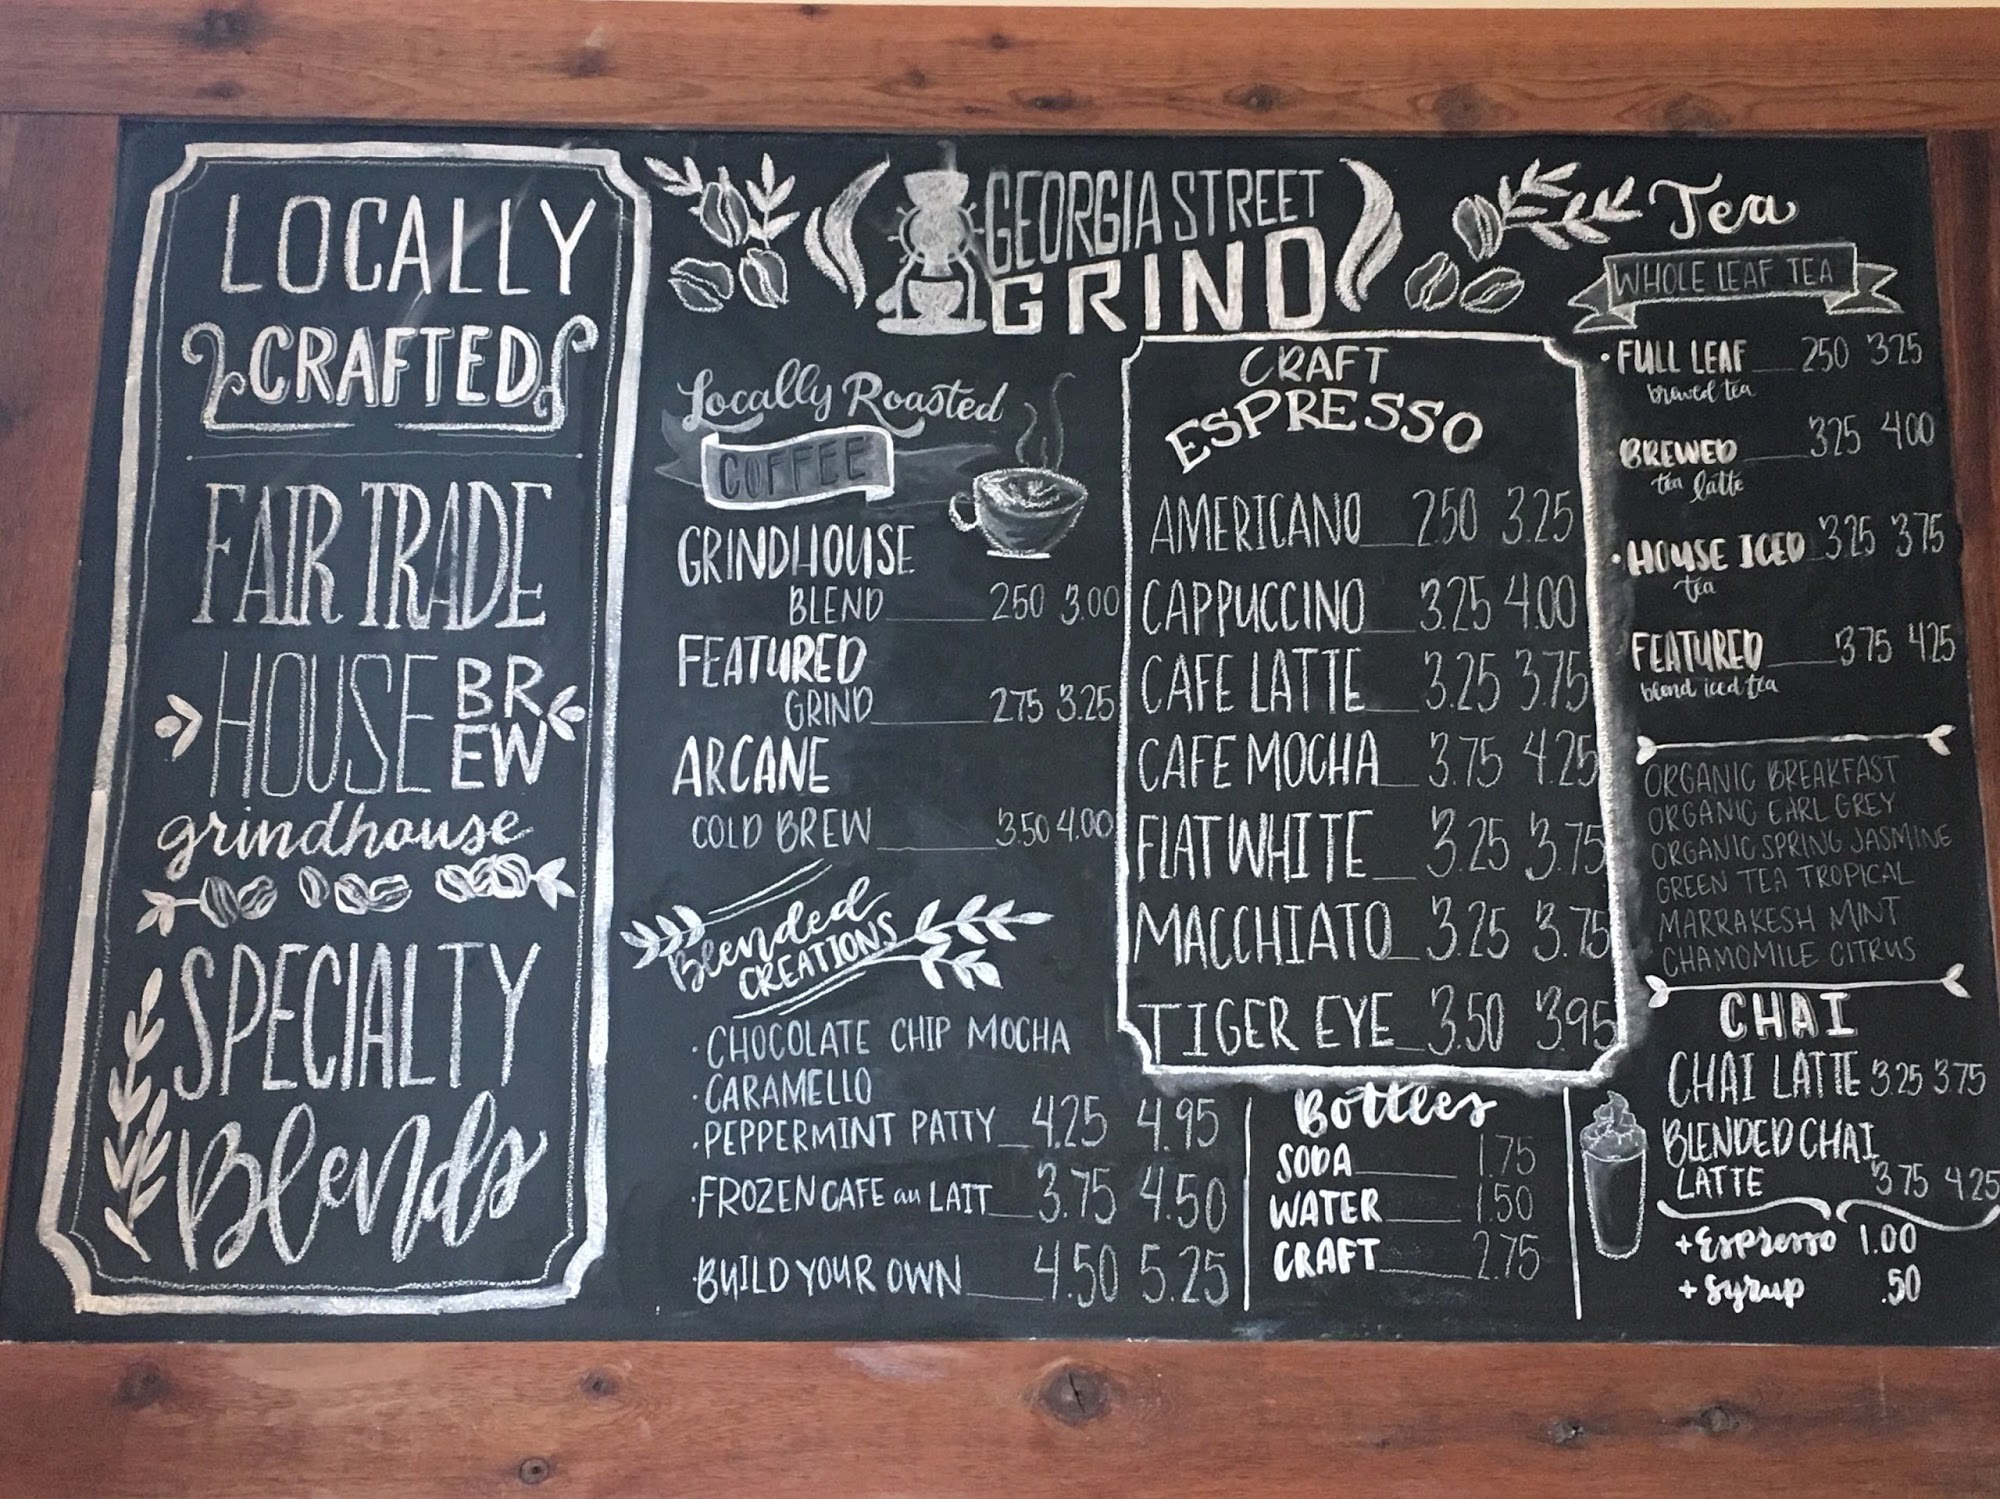 LOCALLY
CRAFTED
FAIR TRADE
HOUSE BREW
grindhouse
SPECIALTY
Blends
GEORGIA STREET
GRIND
Locally Roasted
COFFEE
GRINDHOUSE
BLEND 250 3.00
FEATURED
GRIND 275 3.25
ARCANE
COLD BREW 3.50 4.00
Blended
CREATIONS
· CHOCOLATE CHIP MOCHA
· CARAMELLO
· PEPPERMINT PATTY 4.25 4.95
· FROZEN CAFE au LAIT 3.75 4.50
· BUILD YOUR OWN 4.50 5.25
CRAFT
ESPRESSO
AMERICANO 250 3.25
CAPPUCCINO 3.25 4.00
CAFE LATTE 3.25 3.75
CAFE MOCHA 3.75 4.25
FLAT WHITE 3.25 3.75
MACCHIATO 3.25 3.75
TIGER EYE 3.50 3.95
Bottles
SODA 1.75
WATER 1.50
CRAFT 2.75
Tea
WHOLE LEAF TEA
· FULL LEAF 250 325
brewed tea
BREWED 325 400
tea latte
· HOUSE ICED 325 375
tea
FEATURED 375 425
blend iced tea
ORGANIC BREAKFAST
ORGANIC EARL GREY
ORGANIC SPRING JASMINE
GREEN TEA TROPICAL
MARRAKESH MINT
CHAMOMILE CITRUS
CHAI
CHAI LATTE 325 375
BLENDED CHAI
LATTE 375 425
+ Espresso 1.00
+ Syrup .50